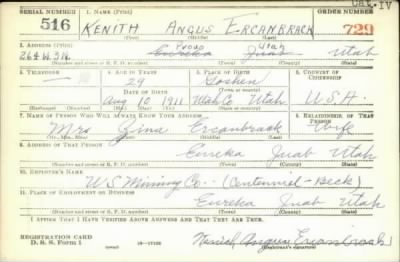 Cat. IV
SERIAL NUMBER 1. NAME (Print) ORDER NUMBER
516 KENITH ANGUS ERCANBRACK 729
2. ADDRESS (Print) Provo Utah
264 W. 3 N. Eureka Juab Utah
5. TELEPHONE 4. AGE IN YEARS 5. PLACE OF BIRTH 6. COUNTRY OF CITIZENSHIP
29 Goshen
DATE OF BIRTH (Town or county)
Aug 10 1911 Utah Co. Utah U.S.A
(Exchange) (Number) (Mo.) (Day) (Yr.) (State or country)
7. NAME OF PERSON WHO WILL ALWAYS KNOW YOUR ADDRESS 8. RELATIONSHIP OF THAT PERSON
Mrs Ercanbrack Wife
(Mr., Mrs., Miss) (First) (Middle) (Last)
9. ADDRESS OF THAT PERSON
Eureka Juab Utah
(Number and street or R. F. D. number) (Town) (County) (State)
10. EMPLOYER'S NAME
U S Mining Co. (Centennial-Beck)
11. PLACE OF EMPLOYMENT OR BUSINESS
Eureka Juab Utah
(Number and street or R. F. D. number) (Town) (County) (State)
I AFFIRM THAT I HAVE VERIFIED ABOVE ANSWERS AND THAT THEY ARE TRUE.
REGISTRATION CARD
D. S. S. Form 1 16-17105 Ercanbrack
(Registrant's signature)